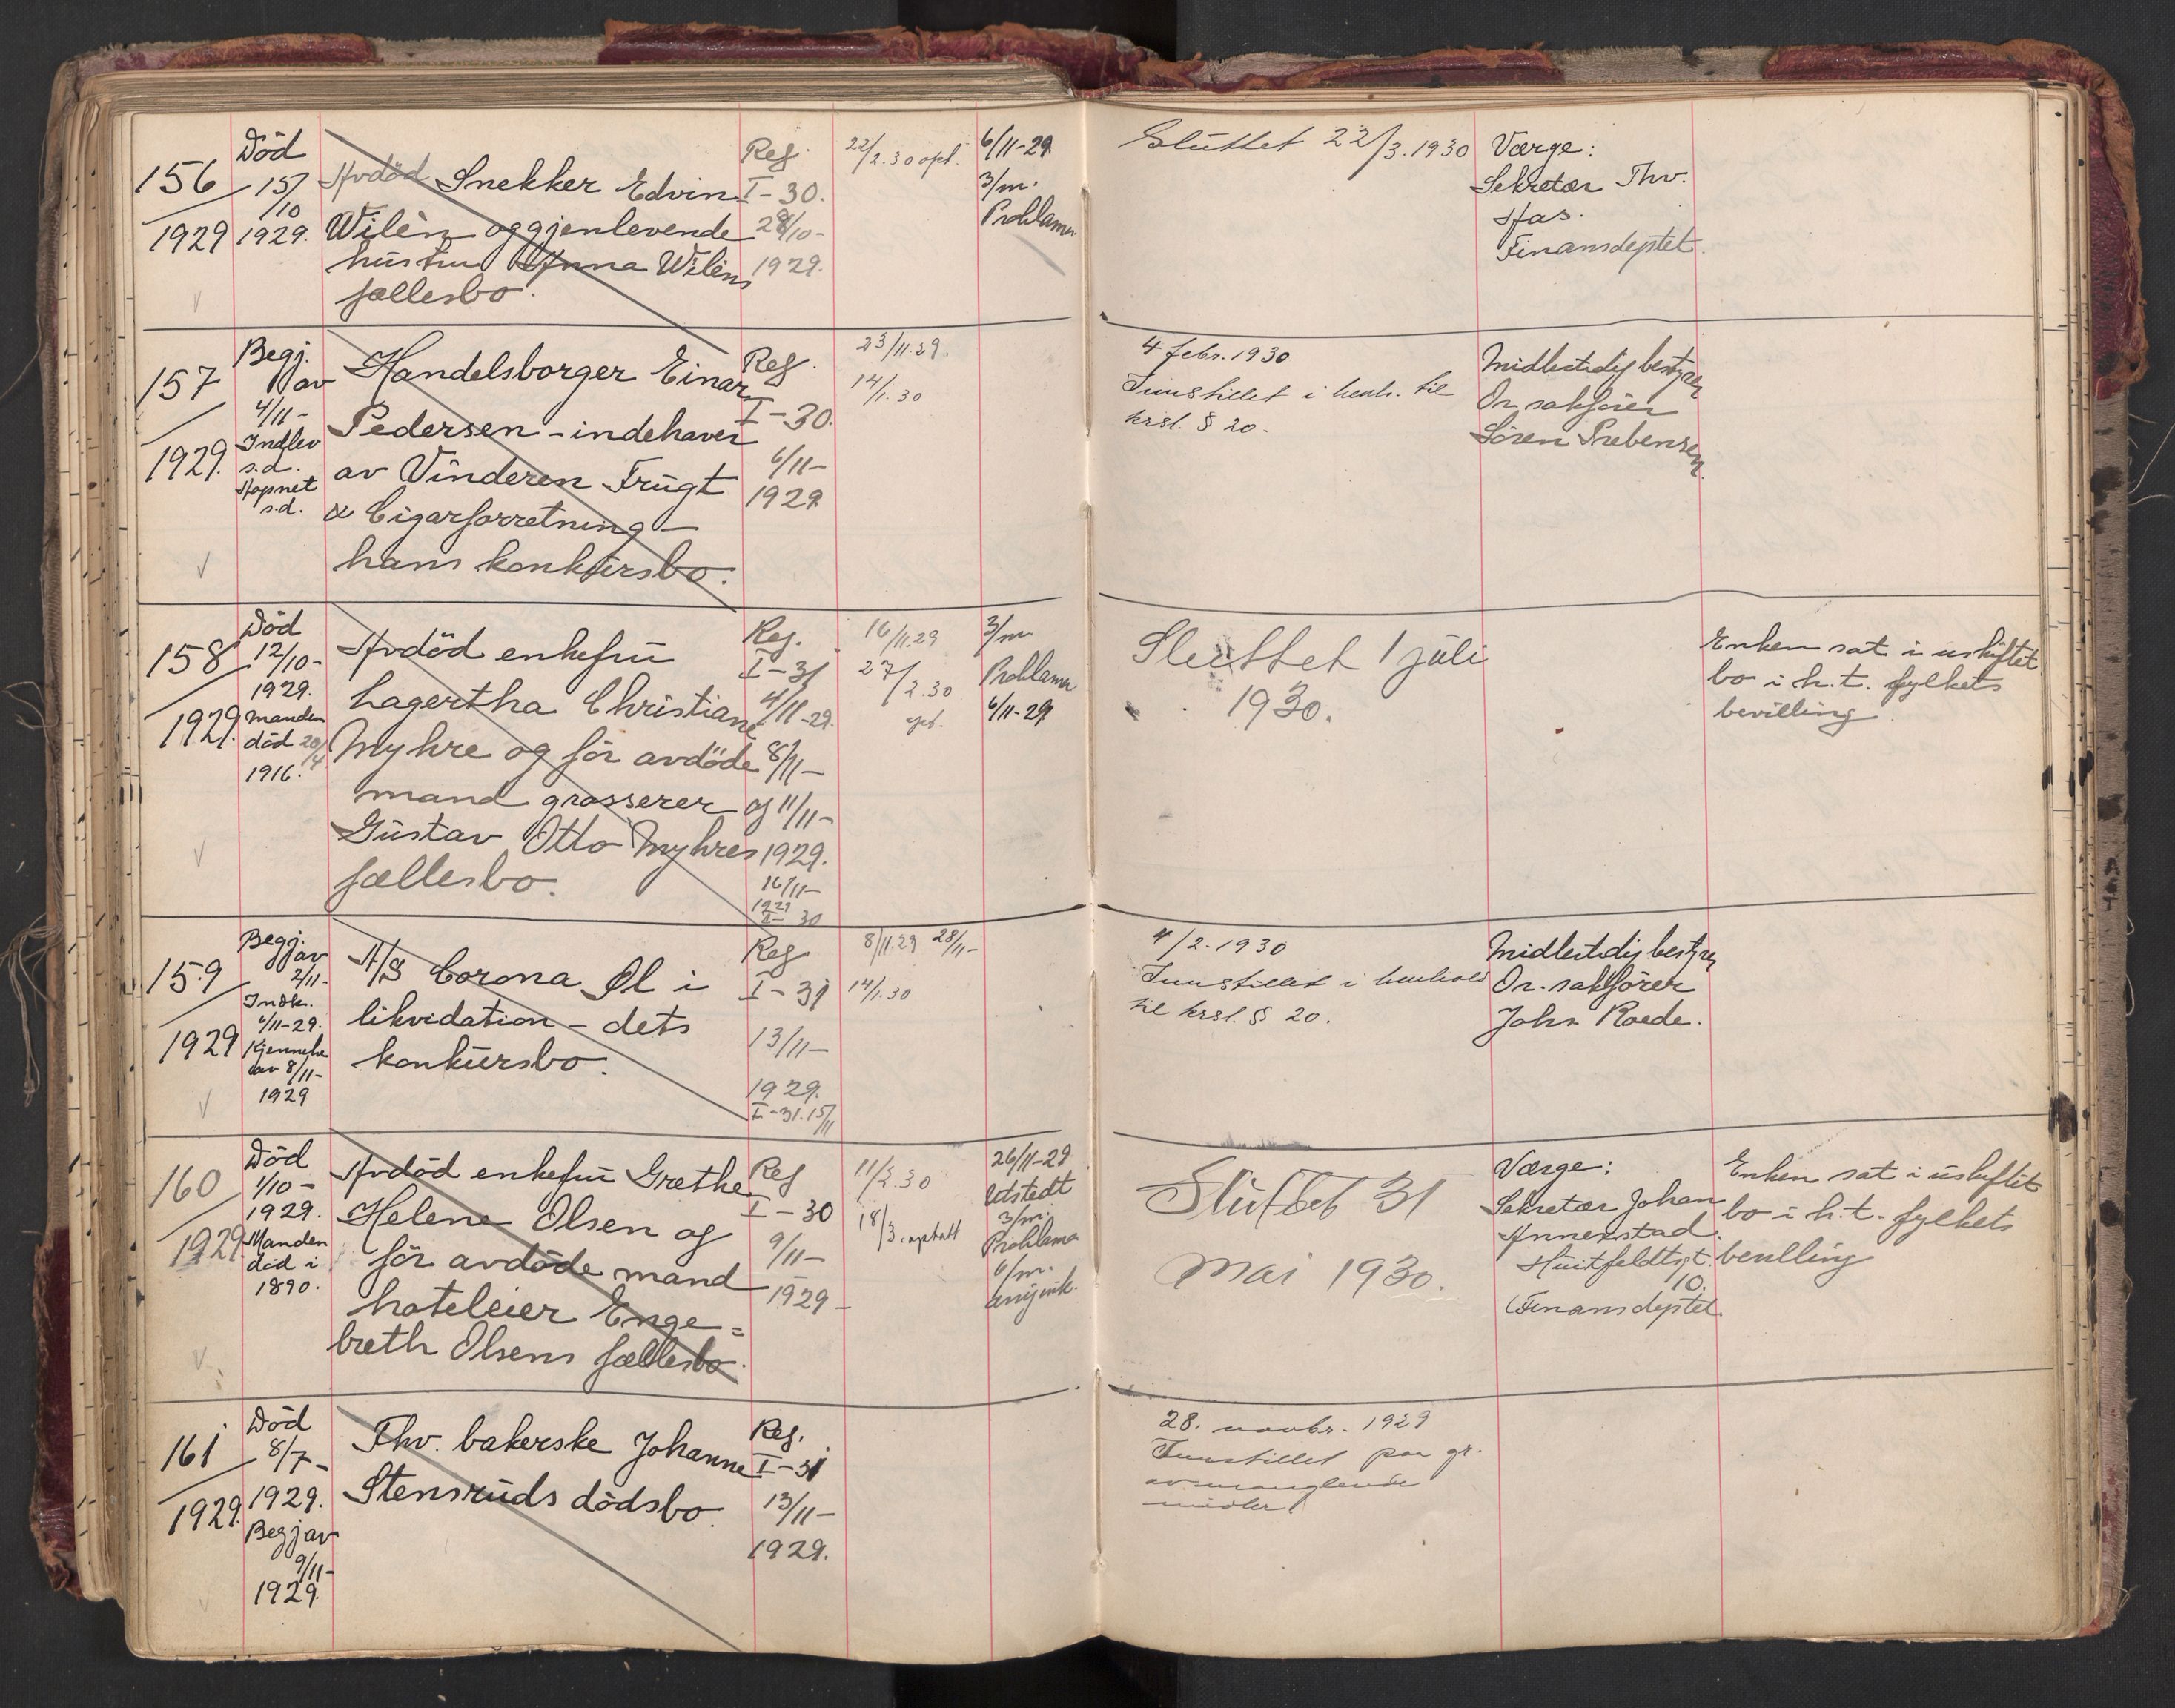 156
1929
Död
15/10
1929.
Avdöd Snekker Edvin
Wilèn og gjenlevende
hustru Anna Wilèns
fællesbo.
Reg.
I-30.
29/10-
1929.
22/2.30 opt.
6/11-29.
3/m.
Proklama
Sluttet 22/3.1930
Værge:
Sekretær Thv.
Aas.
Finansdeptet.
157
1929.
Begj.
av
4/11-
Indlev
s.d.
Aapnet
s.d.
Handelsborger Einar
Pedersen - indehaver
av Vinderen Frugt
& Cigarforretning -
hans konkursbo.
Reg.
I-30.
6/11-
1929
23/11.29.
14/1.30
4 febr. 1930
Innstillet i henh. til
krsl. § 20.
Midlertidig bestyrer
Or. sakförer
Sören Prebensen
158
1929.
Död
12/10-
1929.
Manden
död 20/4
1916.
Avdöd enkefru
Lagertha Christiane
Myhre og för avdöde
mand grosserer
Gustav Otto Myhres
fællesbo.
Reg.
I-31
4/11-29.
8/11-
og 11/11-
1929.
16/11-
1929
II- 30
16/11.29
27/2.30
opt.
3/m
Proklama
6/11-29.
Sluttet 1 juli
1930.
Enken sat i uskiftet
bo i h.t. fylkets
bevilling
159
1929
Begj. av
2/11-
Indk.
6/11-29.
Kjennelse
av 8/11-
1929
A/S Corona Øl i
likvidation - dets
konkursbo.
Reg
I-31
13/11-
1929.
I-31.15/11
8/11.29 28/11-
14/1.30
4/2-1930
Innstillet i henhold
til krsl. § 20.
Midlertidig bestyrer
Or. sakförer
Johs Roede.
160
1929.
Död
1/10-
1929.
Manden
död i
1890.
Avdöd enkefru Grethe
Helene Olsen og
för avdöde mand
hoteleier Enge=
breth Olsens fællesbo.
Reg
I-30
9/11-
1929-
11/2.30
18/3. ophatt
26/11-29
Utstedt
3/m.
Proklama
6/m.
Sluttet 31
Mai 1930.
Værge:
Sekretær Johan
Annerstad.
Huitfeldtsgt.
10.
(Finansdeptet.
Enken sat i uskiftet
bo i h.t. fylkets
bevilling
161
1929.
Död
8/7-
1929.
Begj av
9/11-
1929.
Fhv. bakerske Johanne
Stensruds dödsbo.
Reg.
I-31
13/11-
1929.
28. novbr. 1929
Innstillet paa gr.
av manglende
midler.